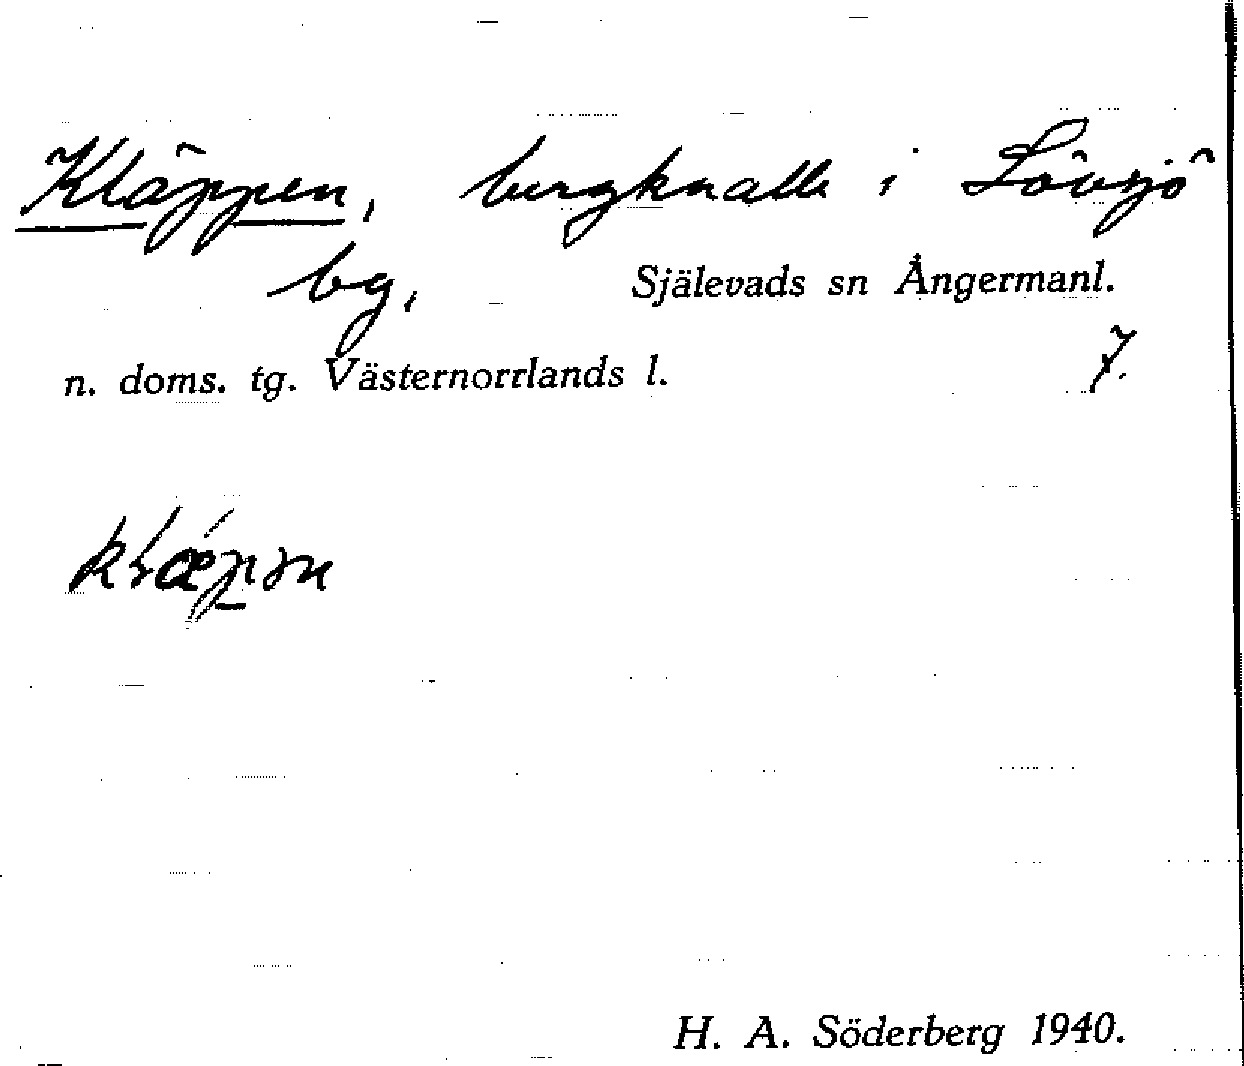 Kläppen, bergknalle i Lövsjö
bg. Själevads sn Ångermanl.
n. doms. tg. Västernorrlands l. 7.
H. A. Söderberg 1940.